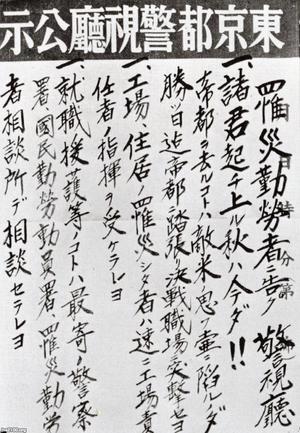 東京都警視廳公示
罹災勤勞者ニ告ク 警視廳
一、諸君起チ上ル秋ハ今ダ!!
帝都ヲ去ルコトハ敵米ノ思フ壷ニ陷ルノダ
勝ツ日迄帝都ニ踏張リ決戦職場ニ突撃セヨ
一、工場、住居ノ罹災シタ者ハ速ニ工場責
任者ノ指揮ヲ受ケラレヨ
一、就職援護等ノコトハ最寄ノ警察
署國民勤勞動員署罹災勤労
者相談所デ相談セラレヨ
jaa2100.org